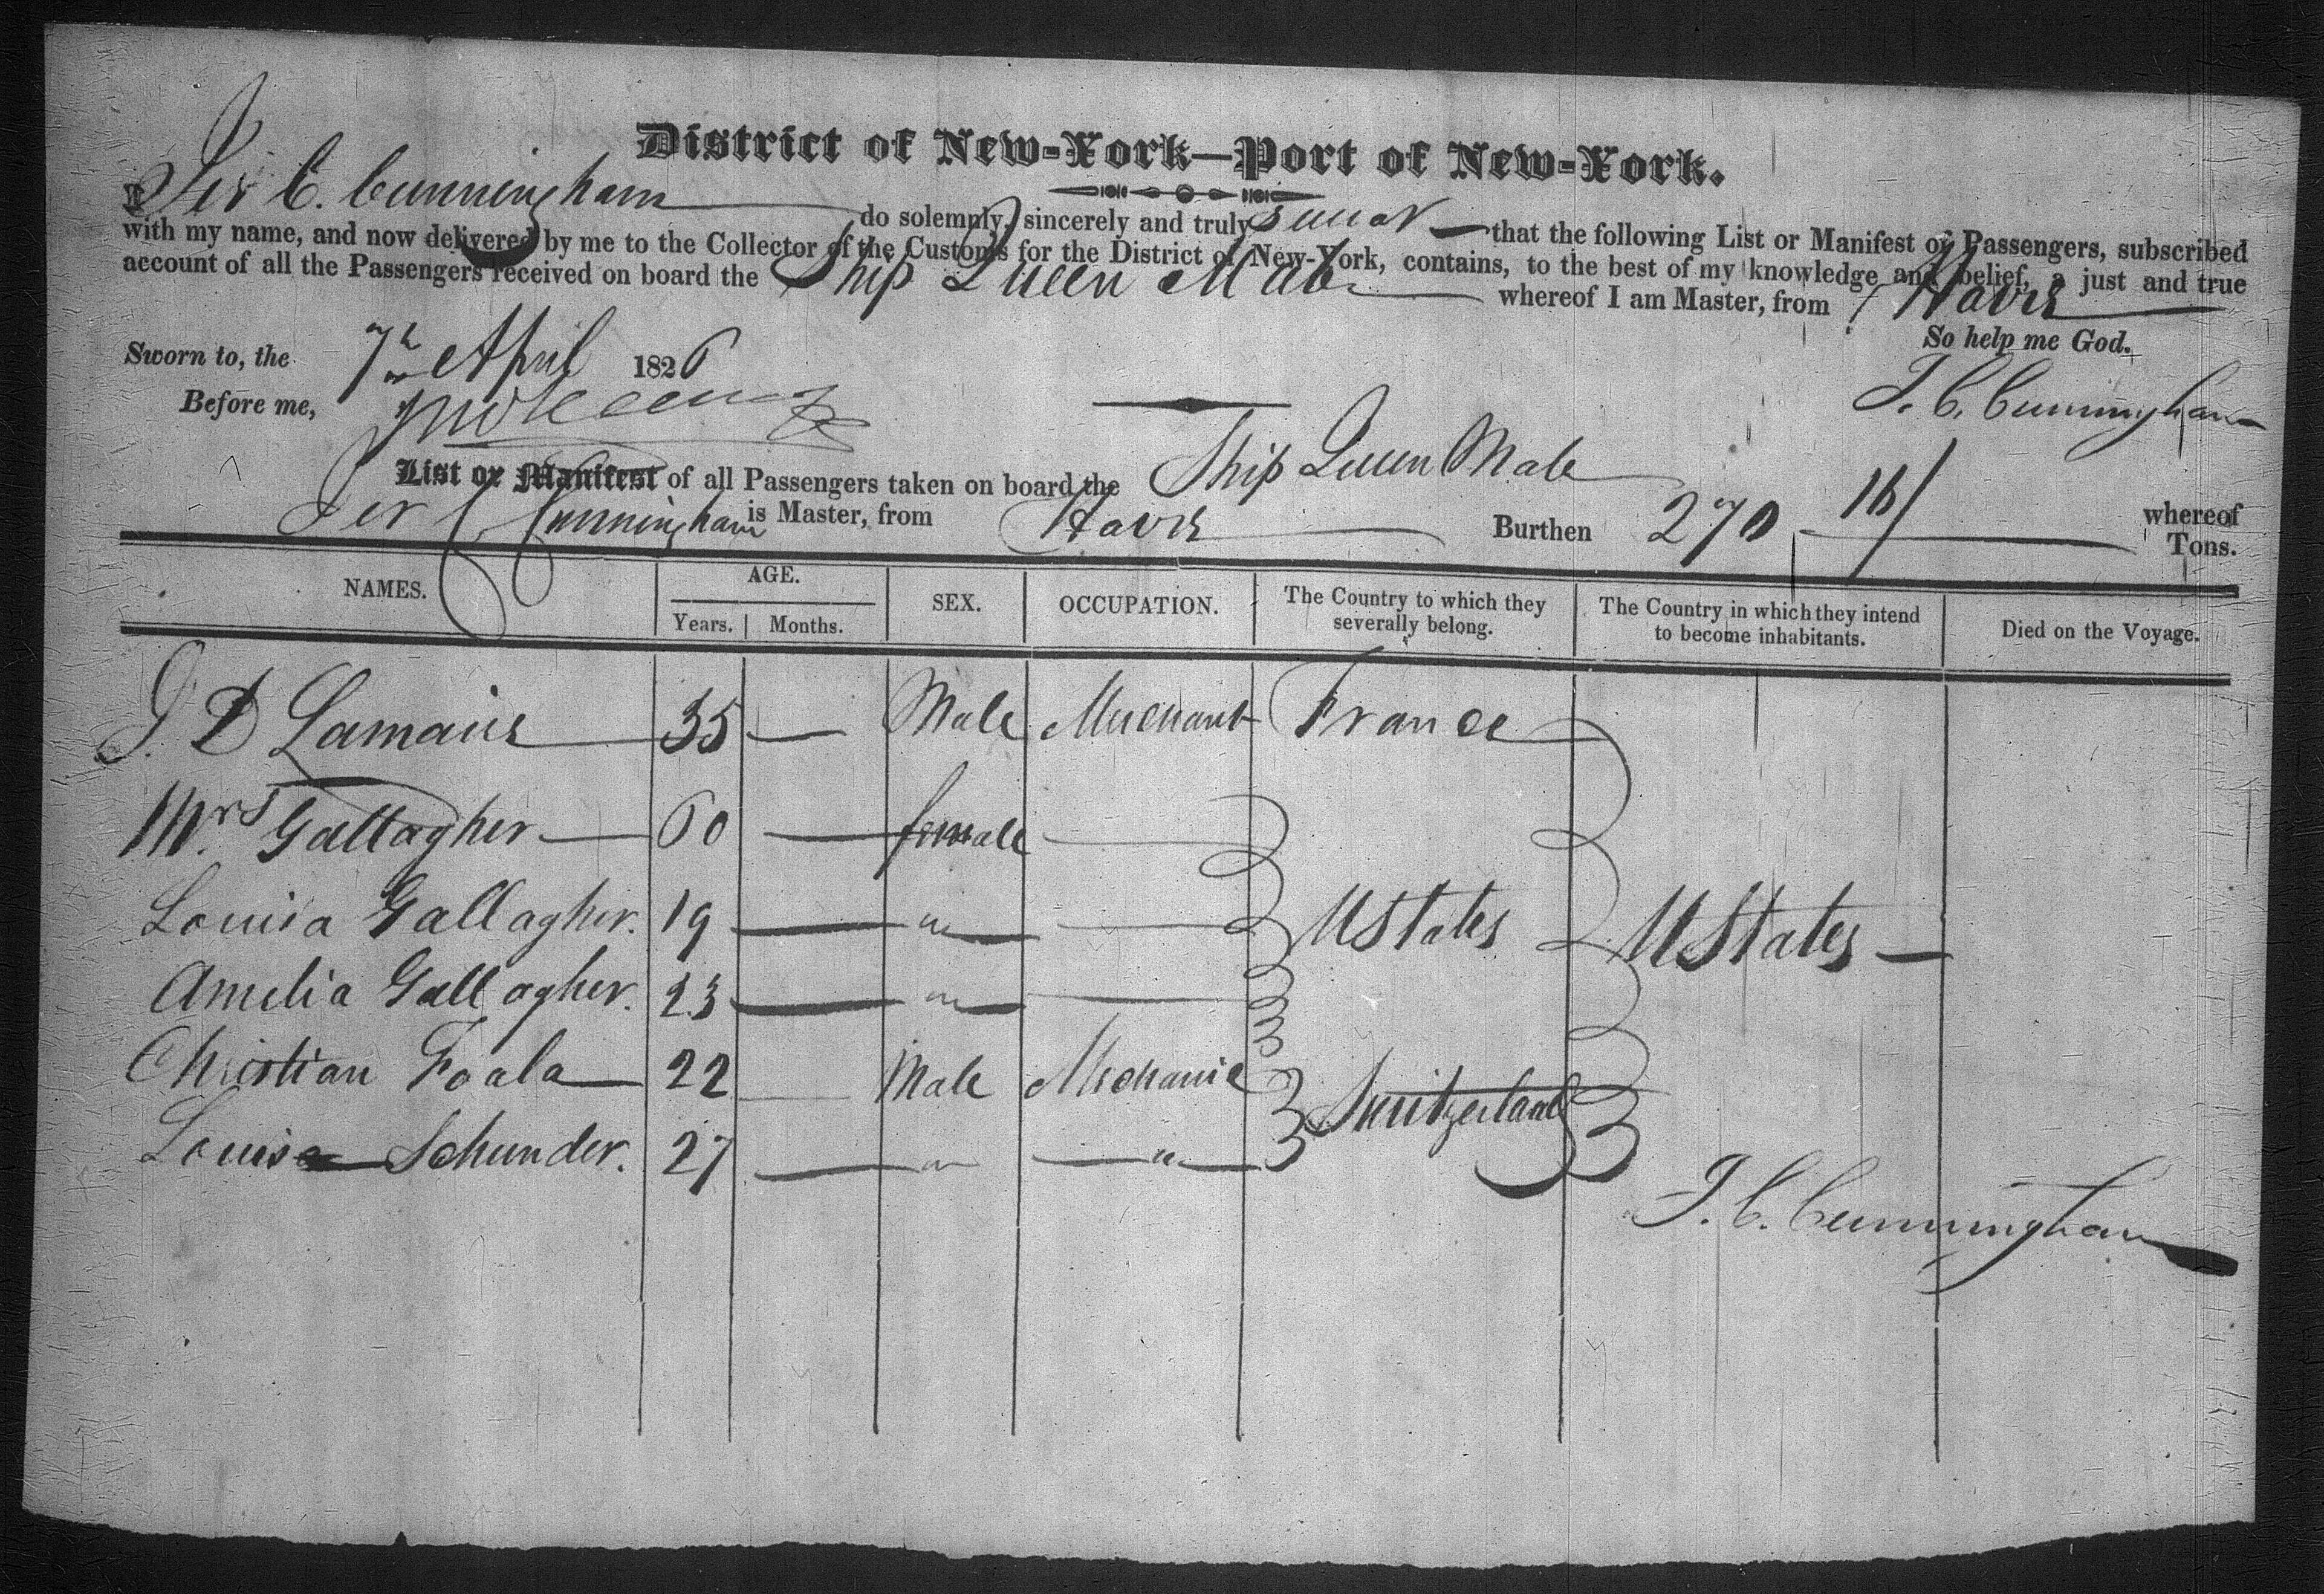 District of New-York—Port of New-York.
I Jer C. Cunningham do solemnly, sincerely and truly swear that the following List or Manifest of Passengers, subscribed
with my name, and now delivered by me to the Collector of the Customs for the District of New-York, contains, to the best of my knowledge and belief, a just and true
account of all the Passengers received on board the Ship Queen Mab whereof I am Master, from Havre
So help me God.
Sworn to, the 7th April 1826
J. C. Cunningham
Before me,
List or Manifest of all Passengers taken on board the Ship Queen Mab whereof
Jer C Cunningham is Master, from Havre Burthen 270 Tons.
NAMES. AGE. Years. Months. SEX. OCCUPATION. The Country to which they severally belong. The Country in which they intend to become inhabitants. Died on the Voyage.
J. D Lamaire 35 — Male Merchant France
Mrs Gallagher 60 — female
Louisa Gallagher. 19 — " — UStates UStates —
Amelia Gallagher. 23 — " —
Christian Foala 22 — Male Mechanic Switzerland
Louis Schunder. 27 — " — " —
J. C. Cunningham